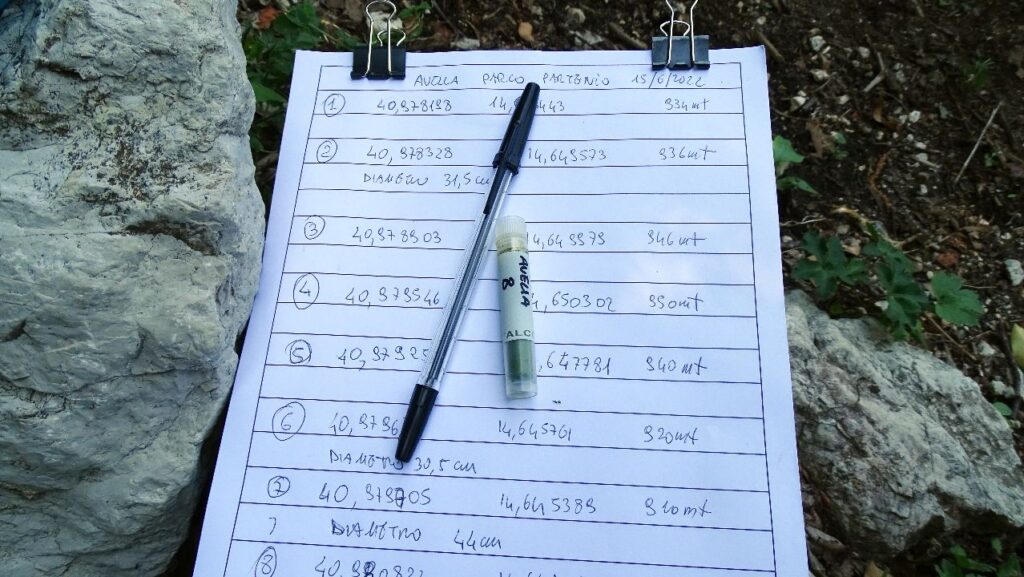 AVELLA PARCO PARTENIO 15/6/2022
① 40,978198 934mt
② 40,978328 14,649573 936mt
DIAMETRO 31,5 cm
③ 40,978903 14,649979 946mt
④ 40,979546 650302 950mt
⑤ 647781 940mt
⑥ 14,645761 920mt
DIAMETRO 30,5 cm
⑦ 40,979705 14,645389 910mt
7 DIAMETRO 44cm
⑧
AVELLA
8
ALC